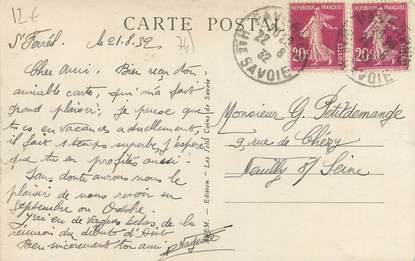 12€
CARTE POSTALE
St Ferréol
le 21.8.32
74
Cher Ami. Bien reçu ton
amiable carte, qui m'a fait
grand plaisir, Je pense que
tu es en vacances actuellement,
il fait 1 temps superbe, j'espère
que tu en profites aussi.
Sans doute aurons nous le
plaisir de nous revoir en
Septembre ou Octobre
J'ai eu de vagues échos de la
réunion du début d'Août
Bien sincèrement ton ami
Monsieur G. Petitdemange
9, rue de Chézy
Neuilly s/ Seine
Edition "Les Jolis Coins de Savoie"
REPUBLIQUE FRANÇAISE
20c
POSTES
REPUBLIQUE FRANÇAISE
20c
POSTES
22 - 8
32
Hte SAVOIE